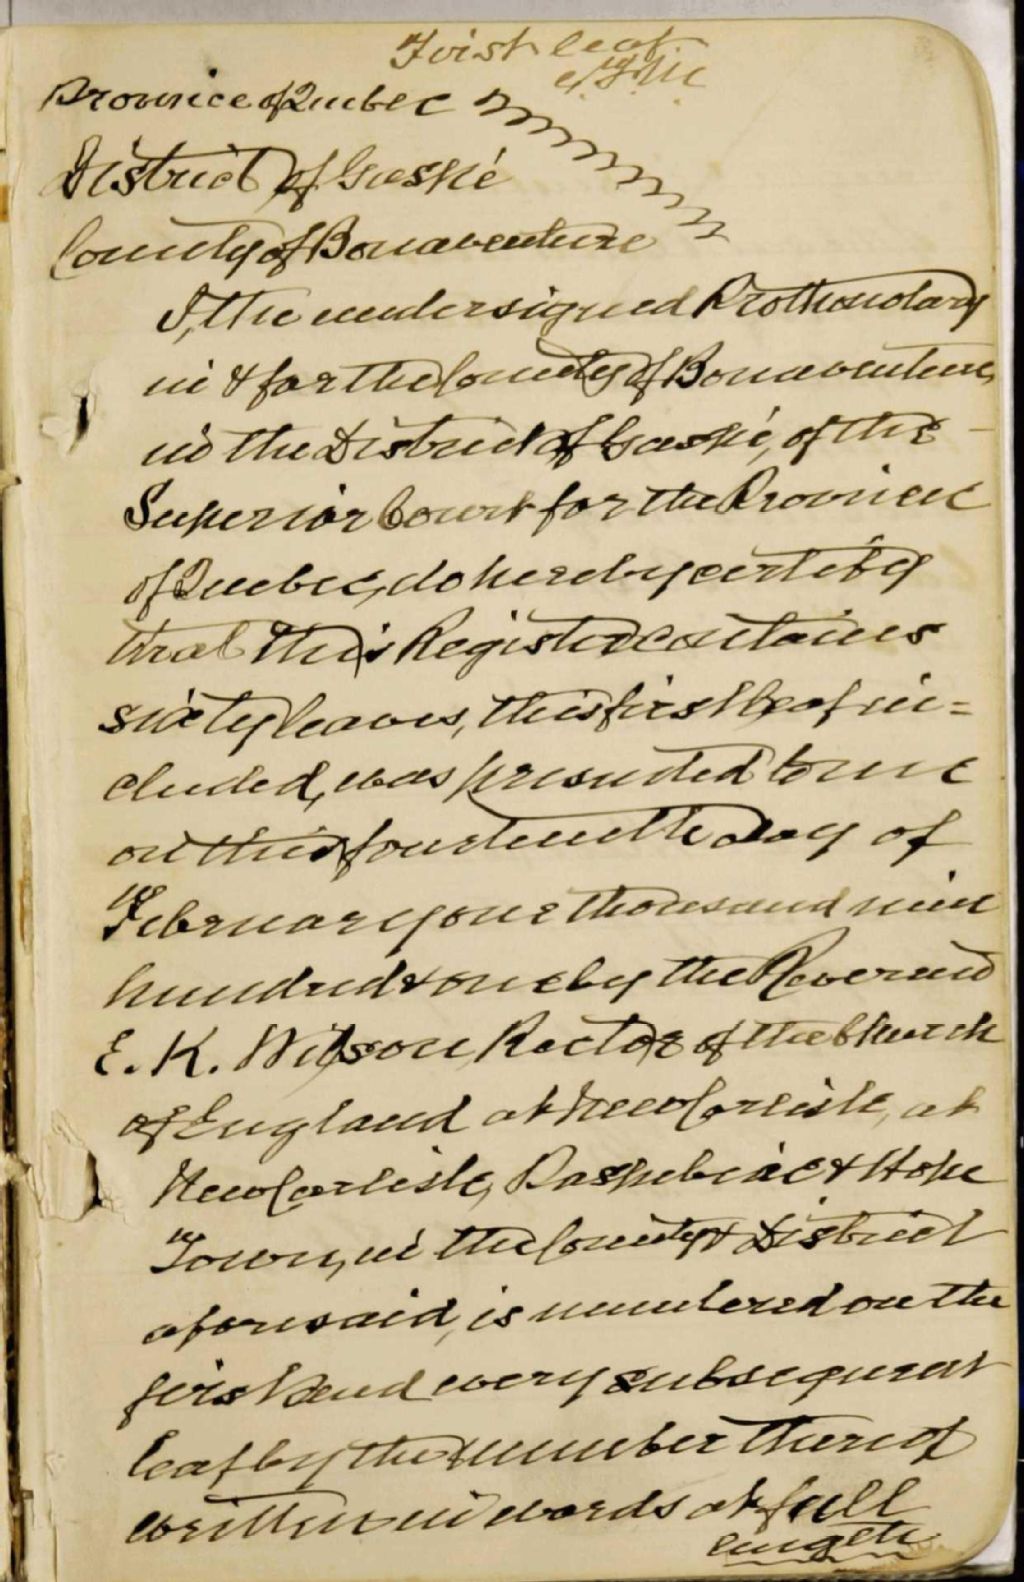 First leaf.
Province of Quebec
District of Gaspé
County of Bonaventure
I, the undersigned Prothonotary
in & for the County of Bonaventure,
in the District of Gaspé, of the
Superior Court for the Province
of Quebec, do hereby certify
that this Register contains
sixty leaves, this first leaf in=
cluded, was presented to me
on this fourteenth day of
February one thousand nine
hundred & one by the Reverend
E. K. Wilson, Rector of the Church
of England at New Carlisle, at
New Carlisle, Paspebiac & Hope
Town, in the County & District
aforesaid, is numbered on the
first and every subsequent
leaf by the number thereof
written in words at full
length